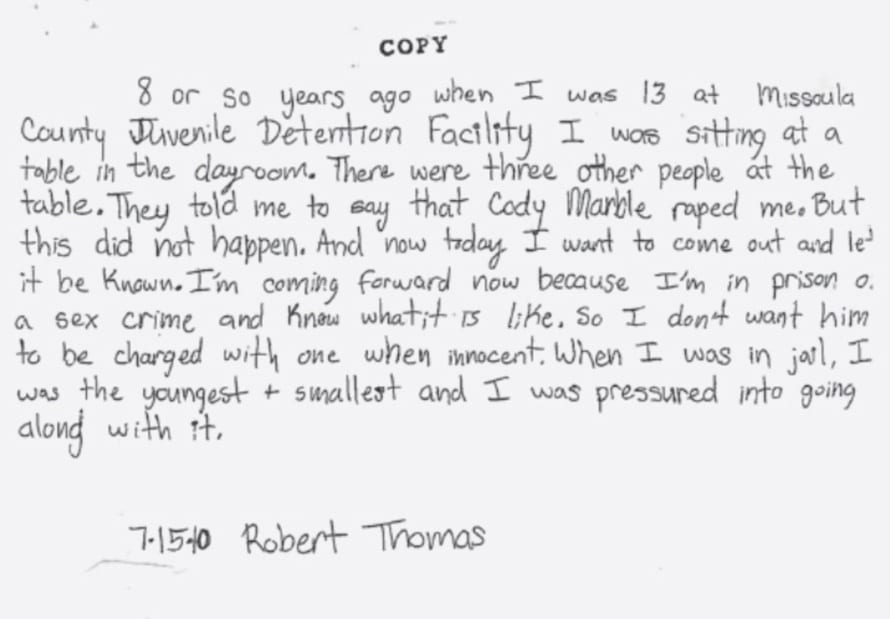 COPY
8 or so years ago when I was 13 at Missoula
County Juvenile Detention Facility I was sitting at a
table in the dayroom. There were three other people at the
table. They told me to say that Cody Marble raped me. But
this did not happen. And now today I want to come out and let
it be known. I'm coming forward now because I'm in prison o.
a sex crime and know what it is like. So I don't want him
to be charged with one when innocent. When I was in jail, I
was the youngest + smallest and I was pressured into going
along with it.
7-15-10 Robert Thomas